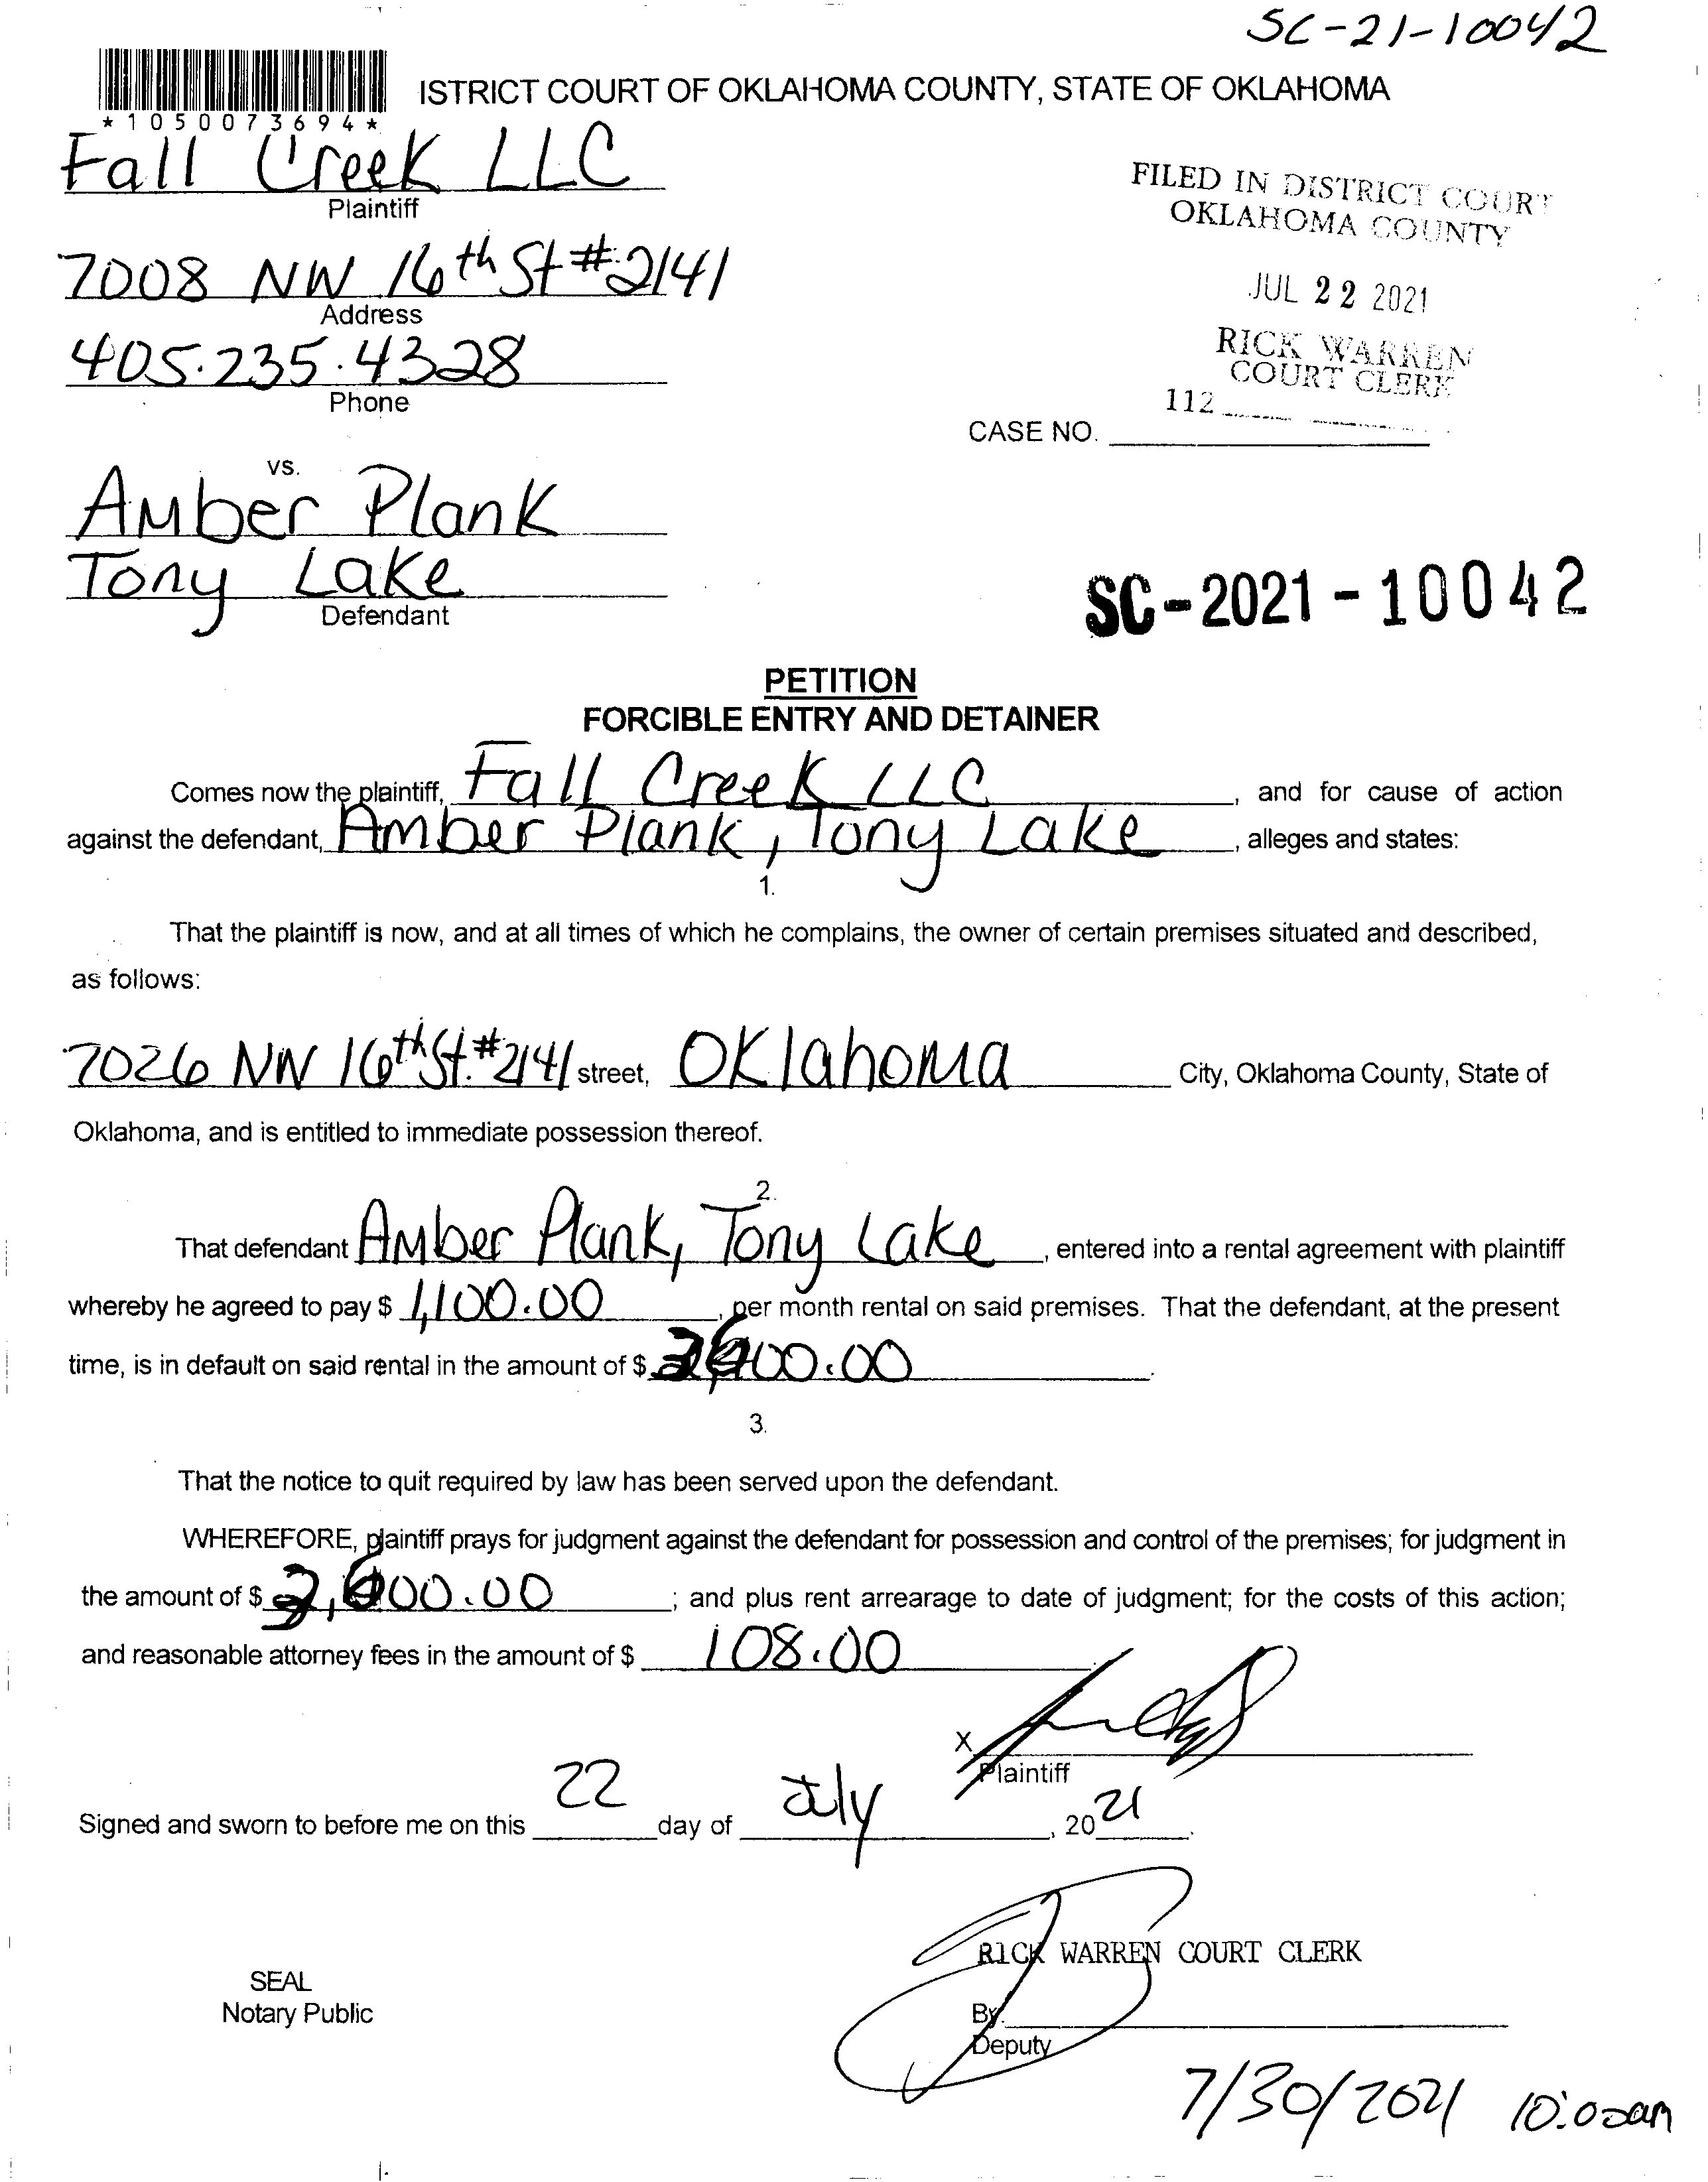 SC-21-10042
ISTRICT COURT OF OKLAHOMA COUNTY, STATE OF OKLAHOMA
*1050073694*
Fall Creek LLC
Plaintiff
FILED IN DISTRICT COURT
OKLAHOMA COUNTY
7008 NW 16th St #2141
Address
JUL 22 2021
405.235.4328
Phone
RICK WARREN
COURT CLERK
112
CASE NO.
vs.
Amber Plank
Tony Lake
Defendant
SC-2021-10042
PETITION
FORCIBLE ENTRY AND DETAINER
Comes now the plaintiff, Fall Creek LLC, and for cause of action
against the defendant, Amber Plank, Tony Lake, alleges and states:
1.
That the plaintiff is now, and at all times of which he complains, the owner of certain premises situated and described,
as follows:
7026 NW 16th St. #2141 street, Oklahoma City, Oklahoma County, State of
Oklahoma, and is entitled to immediate possession thereof.
2.
That defendant Amber Plank, Tony Lake, entered into a rental agreement with plaintiff
whereby he agreed to pay $ 1,100.00, per month rental on said premises. That the defendant, at the present
time, is in default on said rental in the amount of $
3.
That the notice to quit required by law has been served upon the defendant.
WHEREFORE, plaintiff prays for judgment against the defendant for possession and control of the premises; for judgment in
the amount of $ ; and plus rent arrearage to date of judgment; for the costs of this action;
and reasonable attorney fees in the amount of $ 108.00
X
Plaintiff
Signed and sworn to before me on this 22 day of July, 2021.
RICK WARREN COURT CLERK
SEAL
Notary Public
By:
Deputy
7/30/2021 10:00am